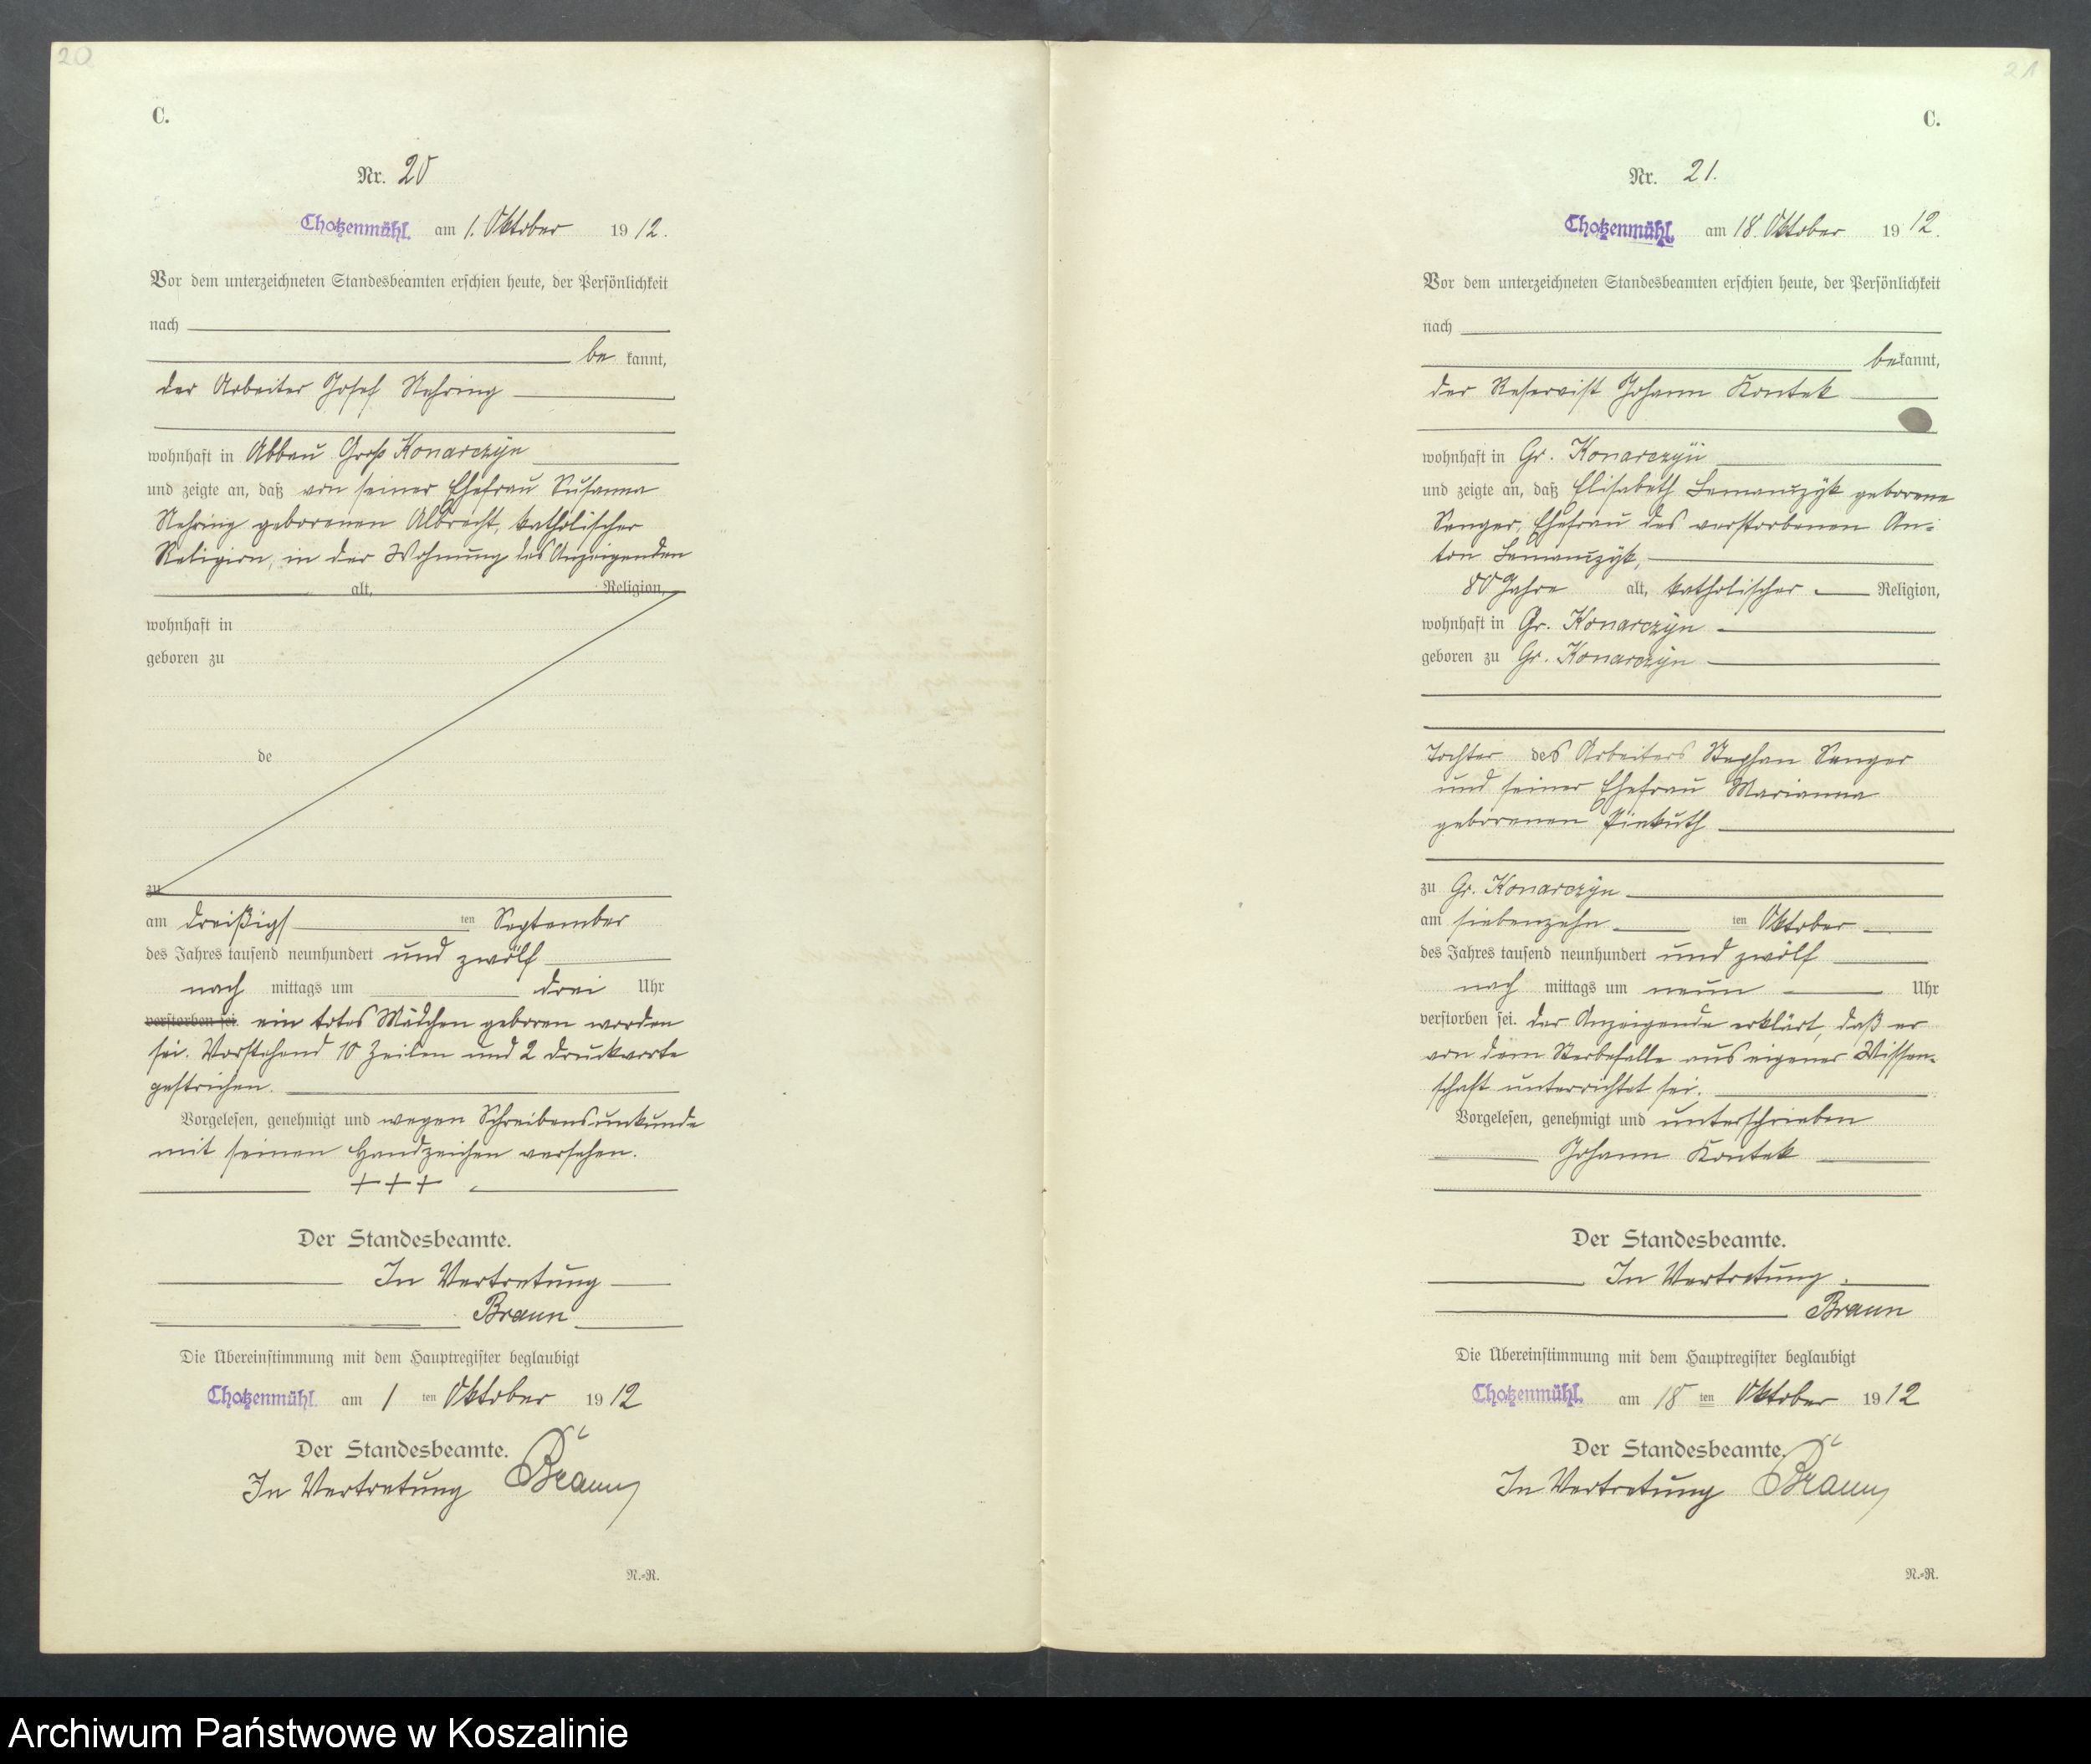 20
C.
Nr. 20
Chotzenmühl. am 1. Oktober 1912.
Vor dem unterzeichneten Standesbeamten erschien heute, der Persönlichkeit
nach
be kannt,
der Arbeiter Josef Nehring
wohnhaft in Abbau Groß Konarczyn
und zeigte an, daß von seiner Ehefrau Susanna
Nehring geborenen Albrecht, katholischer
Religion, in der Wohnung des Anzeigenden
alt, Religion,
wohnhaft in
geboren zu
de
zu
am dreißigst ten September
des Jahres tausend neunhundert und zwölf
nach mittags um drei Uhr
verstorben sei. ein totes Mädchen geboren worden
sei. Vorstehend 10 Zeilen und 2 Druckworte
gestrichen.
Vorgelesen, genehmigt und wegen Schreibensunkunde
mit seinen Handzeichen versehen.
+++
Der Standesbeamte.
In Vertretung
Braun
Die Übereinstimmung mit dem Hauptregister beglaubigt
Chotzenmühl. am 1 ten Oktober 1912
Der Standesbeamte.
In Vertretung Braun
N.-R.
21
C.
Nr. 21.
Chotzenmühl. am 18. Oktober 1912.
Vor dem unterzeichneten Standesbeamten erschien heute, der Persönlichkeit
nach
bekannt,
der Reservist Johann Kontek
wohnhaft in Gr. Konarczyn
und zeigte an, daß Elisabeth Lemanczyk geborene
Senger, Ehefrau des verstorbenen An-
ton Lemanczyk,
80 Jahre alt, katholischer Religion,
wohnhaft in Gr. Konarczyn
geboren zu Gr. Konarczyn
Tochter des Arbeiters Stephan Senger
und seiner Ehefrau Marianna
geborenen
zu Gr. Konarczyn
am siebenzehn ten Oktober
des Jahres tausend neunhundert und zwölf
nach mittags um neun Uhr
verstorben sei. Der Anzeigende erklärt, daß er
von dem Sterbefalle aus eigener Wissen-
schaft unterrichtet sei.
Vorgelesen, genehmigt und unterschrieben
Johann Kontek
Der Standesbeamte.
In Vertretung.
Braun
Die Übereinstimmung mit dem Hauptregister beglaubigt
Chotzenmühl. am 18 ten Oktober 1912
Der Standesbeamte.
In Vertretung Braun
N.-R.
Archiwum Państwowe w Koszalinie